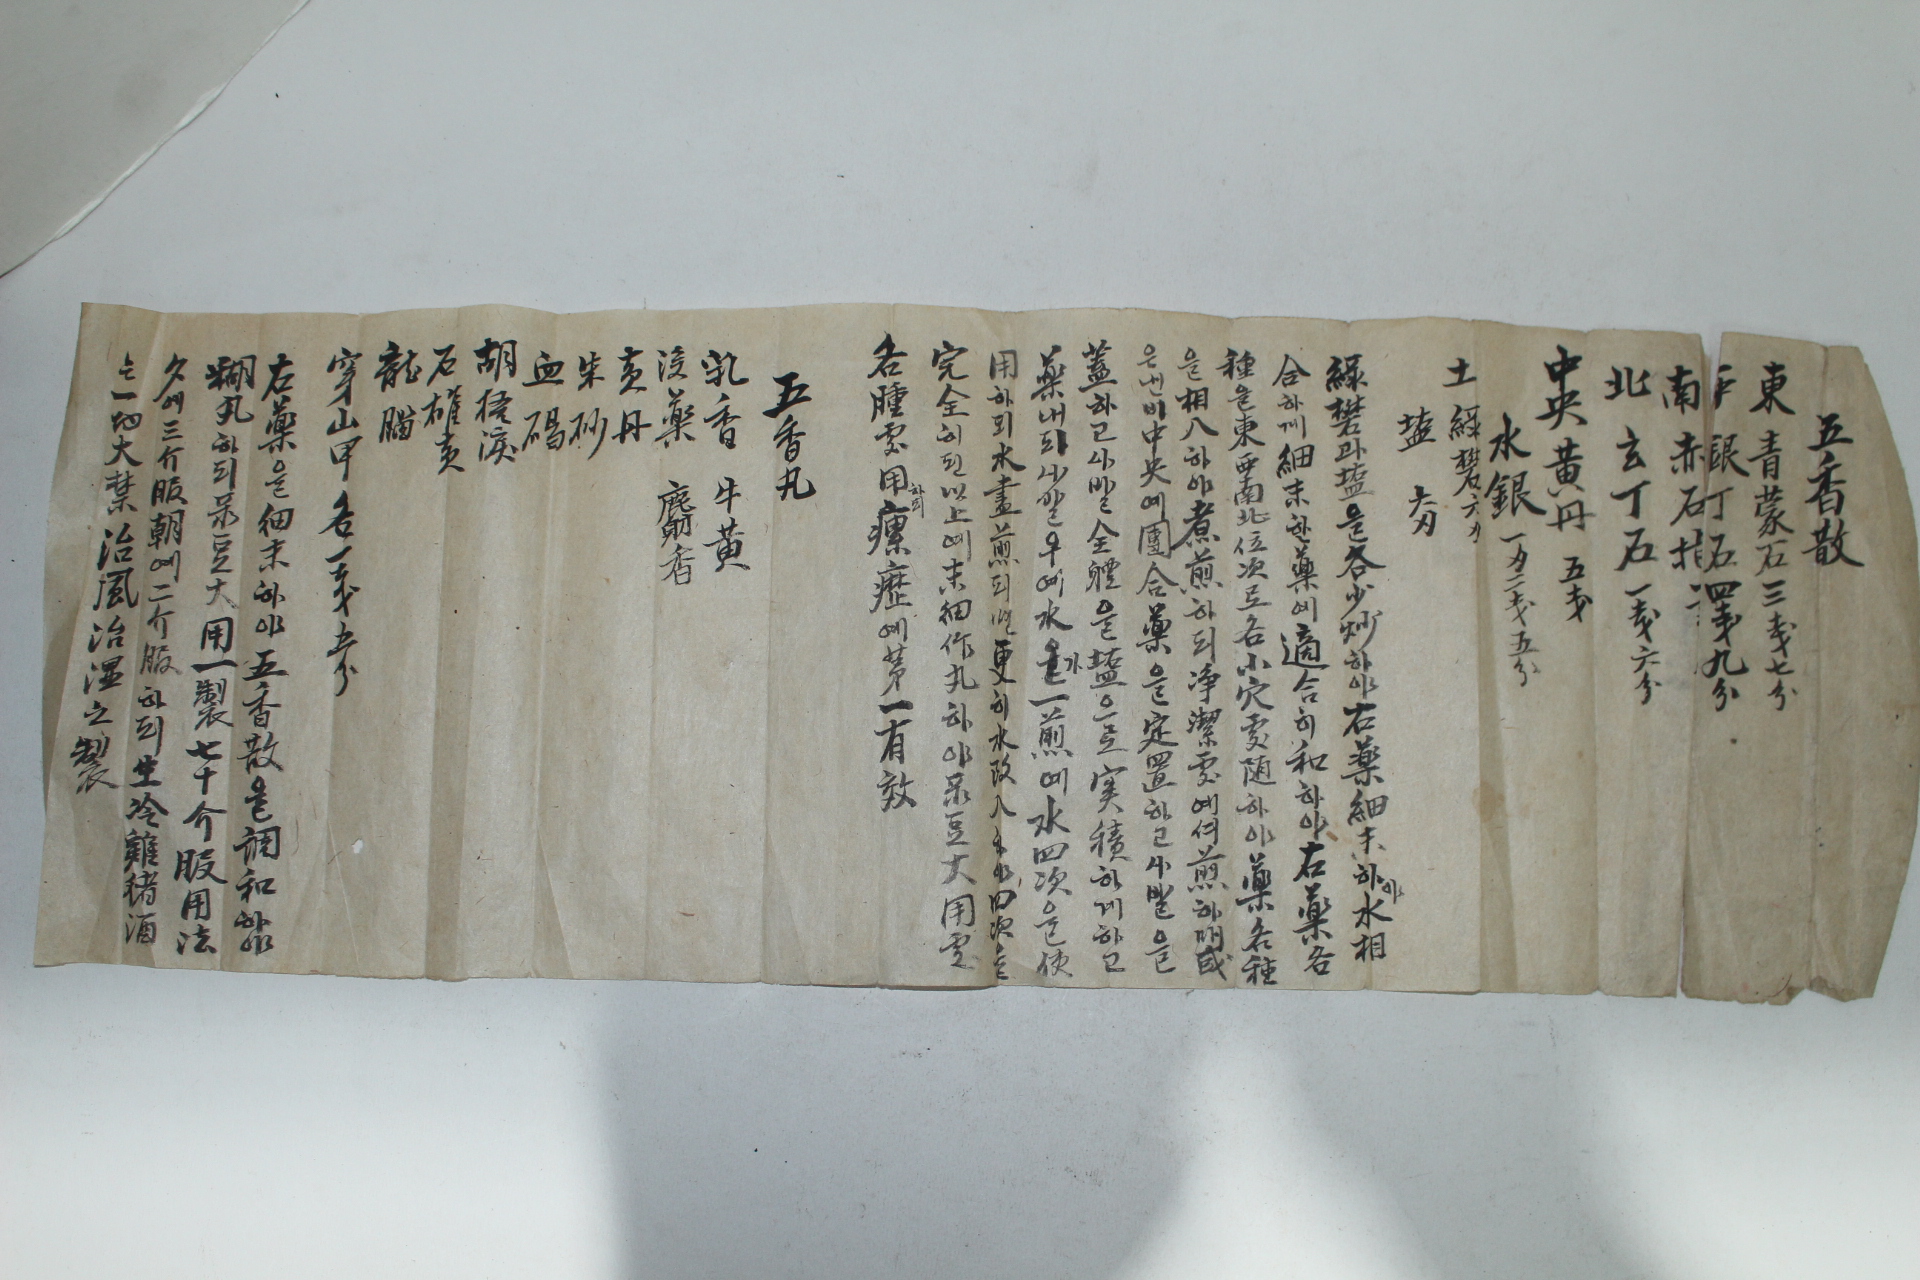 五香散
東 青蒙石 三戔七分
銀丁石 四戔九分
南 赤石
北 玄丁石 一戔六分
中央 黃丹 五戔
水銀 一刃二戔五分
土 綠礬 六刃
塩 六刃
綠礬과塩을各少炒하야右藥細末하야水相
合하게細末한藥에適合히和하야右藥各
種을東西南北位次로各小穴處随하야藥各種
을相入하야煮煎하되净潔處에서煎하
中央에團合藥을定置하고사발을
蓋하고사발全體을塩으로实積하게하고
藥내되사발우에水을가一煎에水四次을使
用하되水盡煎되면更히水改入하야四次을
完全히된以上에末細作丸하야菉豆大用處
各腫處用하되瘰癧에苐一有效
五香丸
乳香 牛黃
沒藥 麝香
黃丹
朱砂
血碣
胡桐淚
石雄黃
龍腦
穿山甲 各一戔五分
右藥을細末하야五香散을調和하야
糊丸하되菉豆大用一製七十介服用法
夕에三介服朝에二介服하되生冷鷄猪酒
는一切大禁治風治湿之製